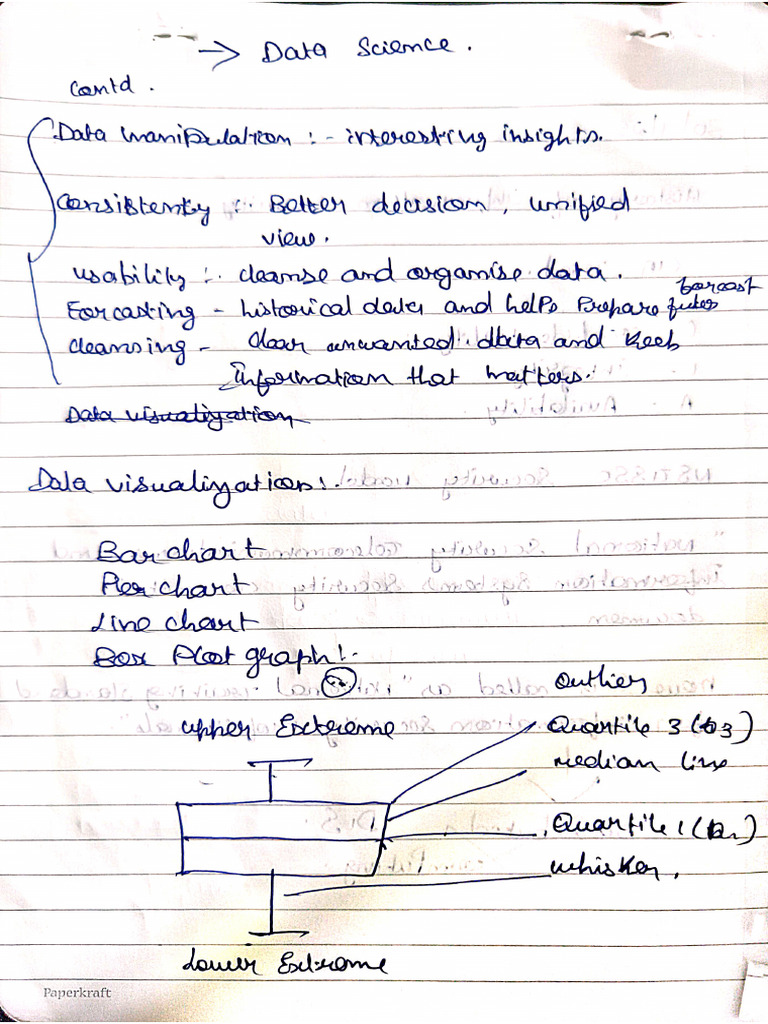 → Data Science.
Contd.
Data manipulation :- interesting insights.
Consistenty :- Better decision, unified
view.
usability :- cleanse and organise data.
Forcasting - historical data and helps prepare forcast
cleansing - clear unwanted data and keep
Information that matters.
Data visualization
Data visualization :-
Bar chart
Pie chart
Line chart
Box Plot graph :-
Outlier
upper Extreme
Quartile 3 (Q3)
median line
Quartile 1 (Q1)
whisker.
Lower Extreme
Paperkraft